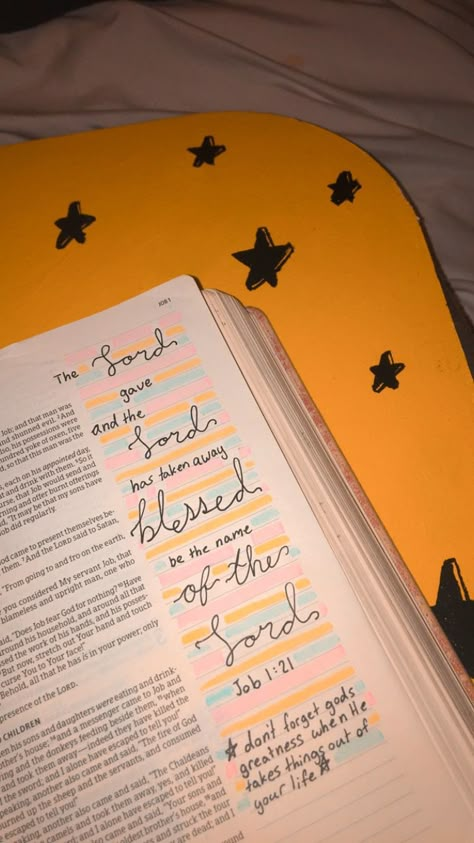 JOB 1
The Lord
gave
and the
Lord
has taken away
blessed
be the name
of the
Lord
Job 1:21
☆ don't forget gods
greatness when He
takes things out of
your life ☆
Job; and that man was
and shunned evil. ²And
also, his possessions were
hundred yoke of oxen, five
d, so that this man was the
s, each on his appointed day,
t and drink with them. ⁵So it
urse, that Job would send and
rning and offer burnt offerings
d, "It may be that my sons have
ob did regularly.
God came to present themselves be-
them. ⁷And the LORD said to Satan,
"From going to and fro on the earth,
you considered My servant Job, that
blameless and upright man, one who
said, "Does Job fear God for nothing? ¹⁰Have
around his household, and around all that
sed the work of his hands, and his posses-
But now, stretch out Your hand and touch
curse You to Your face!"
Behold, all that he has is in your power; only
presence of the LORD.
CHILDREN
en his sons and daughters were eating and drink-
other's house; and a messenger came to Job and
ing and the donkeys feeding beside them, ¹⁵when
took them away—indeed they have killed the
the sword; and I alone have escaped to tell you!"
peaking, another also came and said, "The fire of God
urned up the sheep and the servants, and consumed
escaped to tell you!"
aking, another also came and said, "The Chaldeans
camels and took them away, yes, and killed
the sword; and I alone have escaped to tell you!"
another also came and said, "Your sons and
oldest brother's house, ¹⁹and
and struck the four
are dead; and I